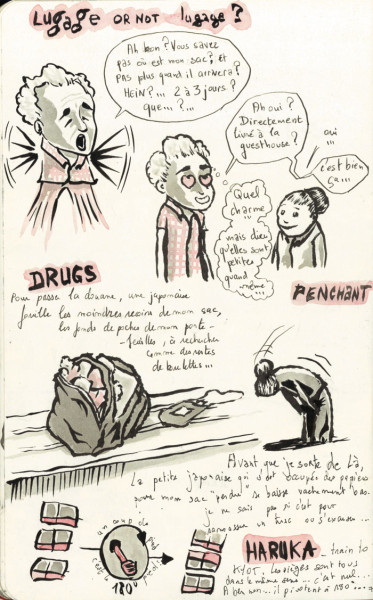 Lugage OR NOT lugage?
Ah bon? Vous savez
pas où est mon sac? Et
pas plus quand il arrivera?
HEIN?... 2 à 3 jours?
que...?...
Ah oui?
Directement
livré à la
guesthouse?
oui
...
c'est bien
ça...
Quel
charme
...
mais dieu
qu'elles sont
petites
quand
même...
DRUGS
PENCHANT
Pour passer la douane, une japonaise
fouille les moindres recoins de mon sac,
les fonds de poches de mon porte-
-feuilles, à rechercher
comme des restes
de boulettes...
Avant que je sorte de là,
la petite japonaise qui s'est occupée des papiers
pour mon sac perdu se baisse vachement bas.
je ne sais pas si c'est pour
ramasser un truc ou s'excuser...
un coup de
pied
c'est
180°
HARUKA - train to
KYOT. Les sièges sont tous
dans le même sens... c'est nul...
A ben non... il pivotent à 180°...